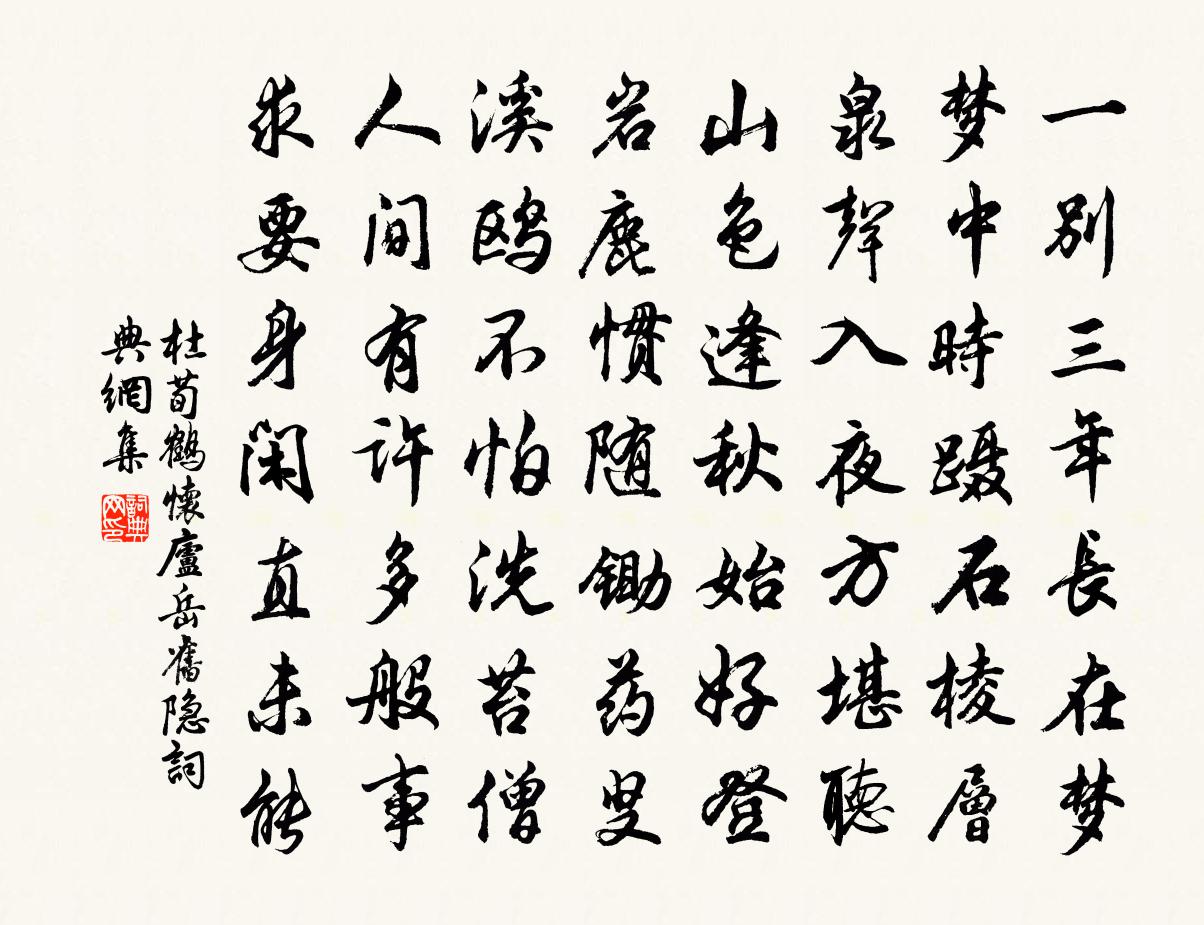 一别三年長在梦
梦中時蹑石棱層
泉聲入夜方堪聽
山色逢秋始好登
岩鹿惯随锄药叟
溪鸥不怕洗苔僧
人间有许多般事
求要身闲直未能
杜荀鶴懷廬岳舊隐詞
典網集
詞典网印